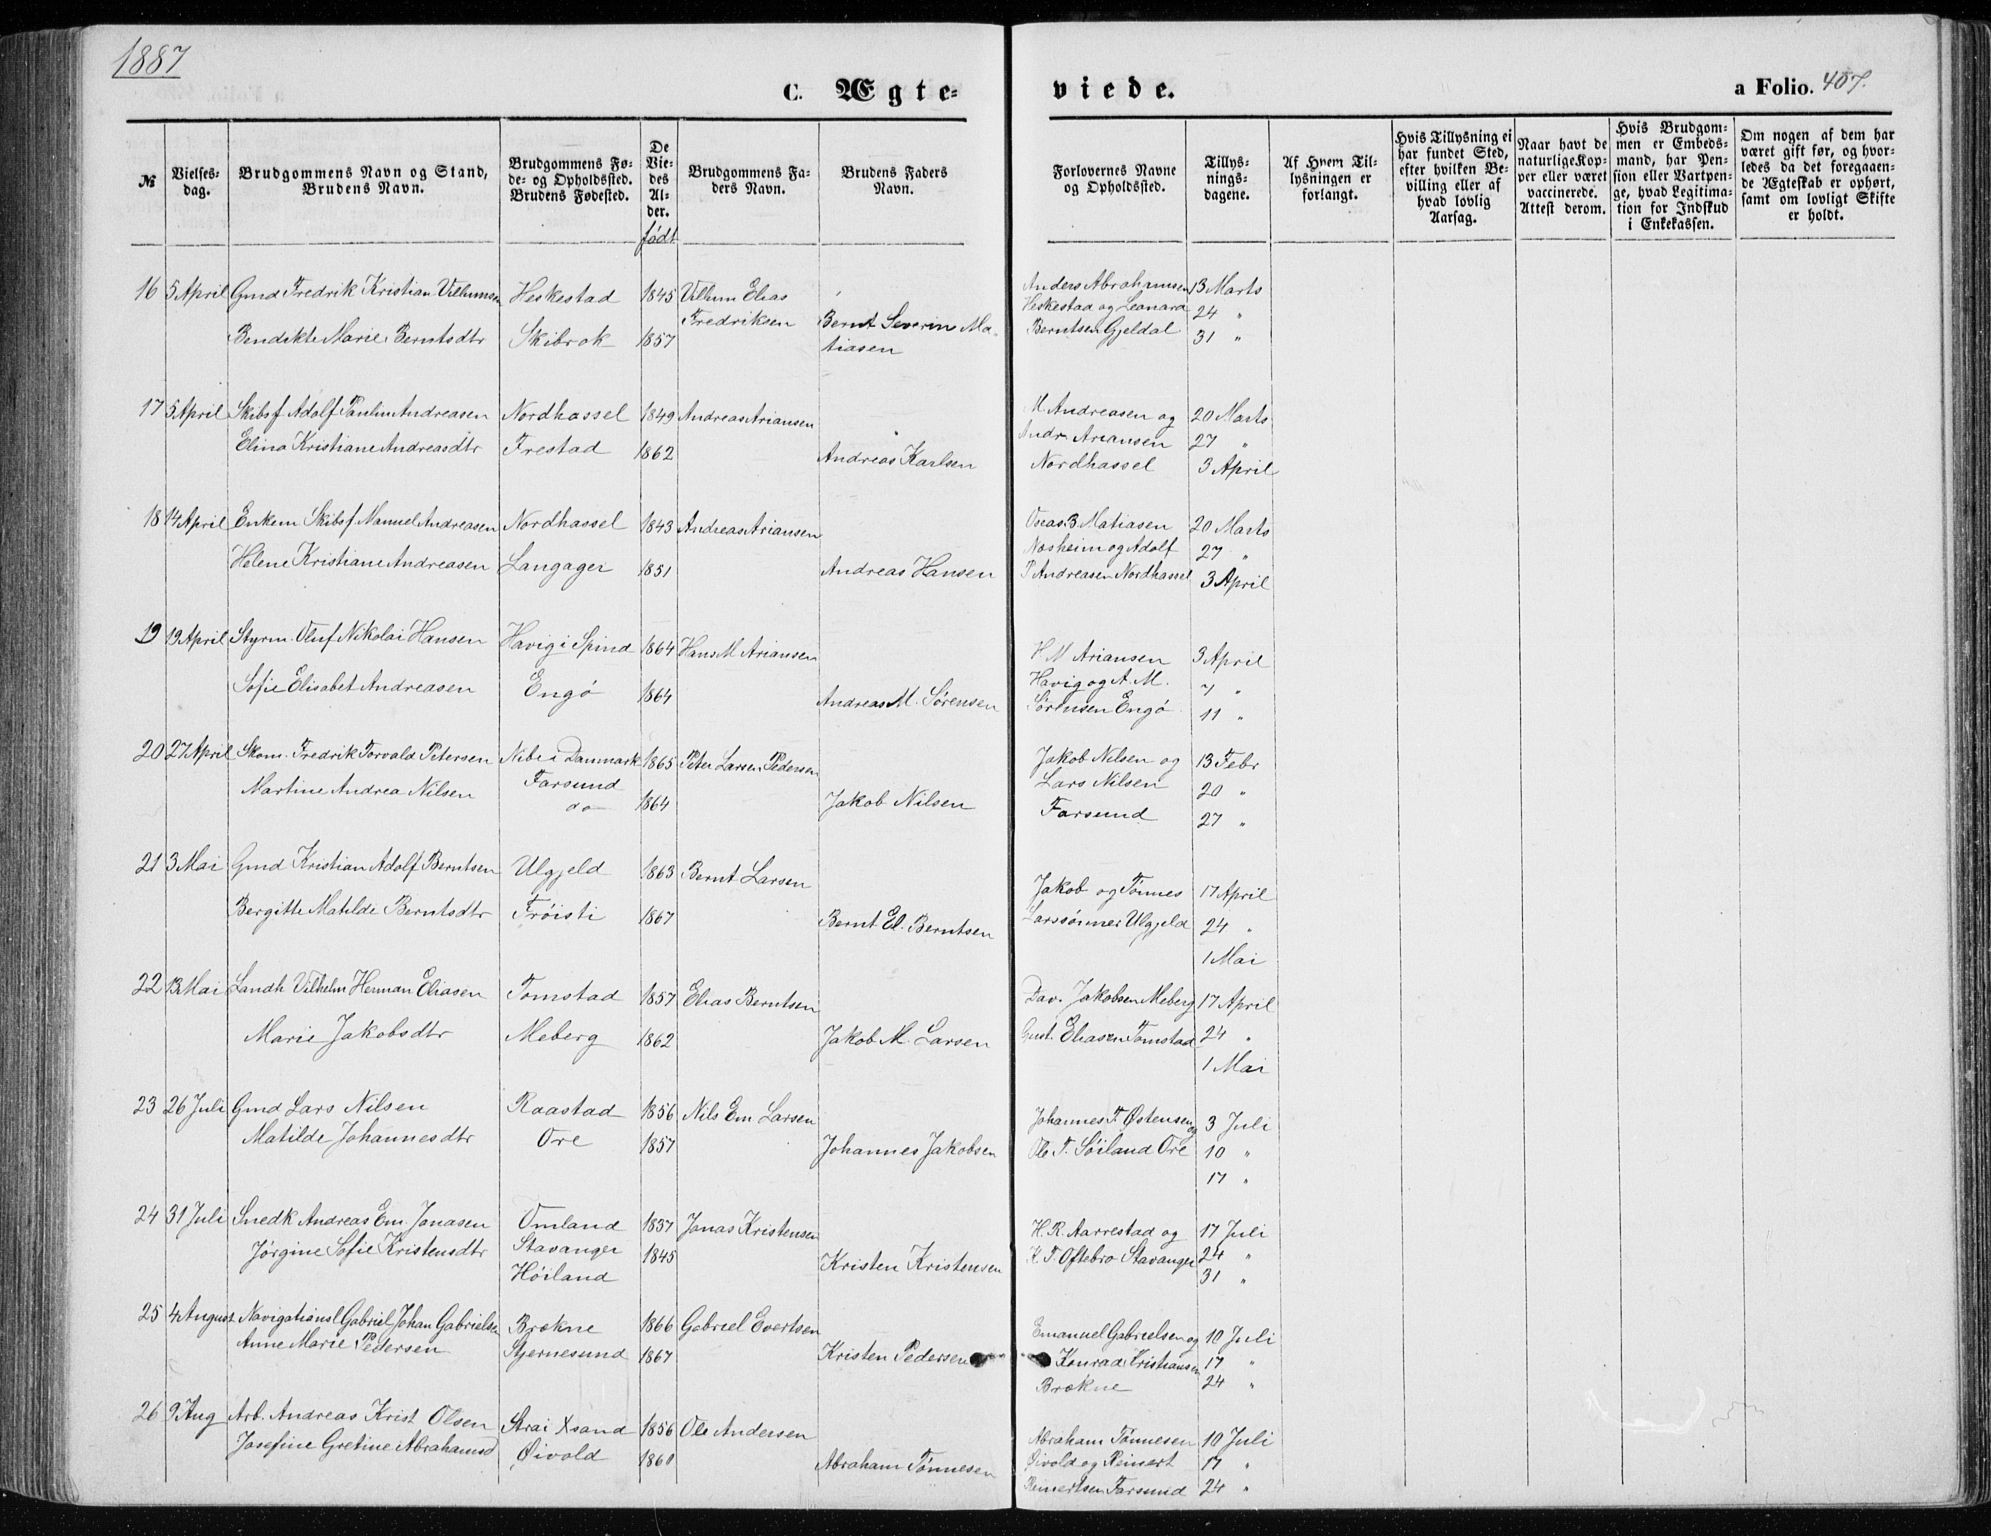 1887
C. Ægte-
viede.
a Folio. 407.
№
Vielses-
dag.
Brudgommens Navn og Stand,
Brudens Navn.
Brudgommens Fø-
de- og Opholdssted.
Brudens Fødested.
De
Vie-
des
Al-
der.
født
Brudgommens Fa-
ders Navn.
Brudens Faders
Navn.
Forlovernes Navne
og Opholdssted.
Tillys-
nings-
dagene.
Af Hvem Til-
lysningen er
forlangt.
Hvis Tillysning ei
har fundet Sted,
efter hvilken Be-
villing eller af
hvad lovlig
Aarsag.
Naar havt de
naturlige Kop-
per eller været
vaccinerede.
Attest derom.
Hvis Brudgom-
men er Embeds-
mand, har Pen-
sion eller Vartpen-
ge, hvad Legitima-
tion for Indskud
i Enkekassen.
Om nogen af dem har
været gift før, og hvor-
ledes da det foregaaen-
de Ægteskab er ophørt,
samt om lovligt Skifte
er holdt.
16 5 April Gmd Fredrik Kristian Villumsen Heskestad 1845 Villum Elias
Fredriksen
Bendikte Marie Berntsdtr Skibrok 1857 Bernt Severin Ma-
tiasen
Anders Abrahamsen 13 Marts
Heskestad og Leonard 24 "
Berntsen Gjeldal 31 "
17 5 April Skibsf Adolf Paulin Andreasen Nordhassel 1849 Andreas Ariansen
Elina Kristiane Andreasdtr Frestad 1862 Andreas Karlsen
M. Andreasen og 20 Marts
Andr. Ariansen 27 "
Nordhassel 3 April
18 14 April Enkem Skibsf Manuel Andreasen Nordhassel 1843 Andreas Ariansen
Helene Kristiane Andreasen Langager 1851 Andreas Hansen
Oseas B Matiasen 20 Marts
Næsheim og Adolf 27 "
P Andreasen Nordhassel 3 April
19 19 April Styrm. Oluf Nikolai Hansen Havig i Spind 1864 Hans M Ariansen
Sofie Elisabet Andreasen Engö 1864 Andreas M. Sørensen
H M Ariansen 3 April
Havig og A. M. 7 "
Sørensen Engö 11 "
20 27 April Skom. Fredrik Torvald Petersen Nibe i Danmark 1865 Peter Larsen Pedersen
Farsund
Martine Andrea Nilsen do 1864 Jakob Nilsen
Jakob Nilsen og 13 Febr
Lars Nilsen 20 "
Farsund 27 "
21 3 Mai Gmd Kristian Adolf Berntsen Ulgjeld 1863 Bernt Larsen
Bergitte Matilde Berntsdtr Fröisti 1867 Bernt El. Berntsen
Jakob og Tönnes 17 April
Larssönner Ulgjeld 24 "
1 Mai
22 13 Mai Landh Vilhelm Herman Eliasen Tomstad 1857 Elias Berntsen
Marie Jakobsdtr Meberg 1862 Jakob M. Larsen
Dav. Jakobsen Meberg 17 April
Gust. Eliasen Tomstad 24 "
1 Mai
23 26 Juli Gmd Lars Nilsen Raastad 1856 Nils Em Larsen
Matilde Johannesdtr Ore 1857 Johannes Jakobsen
Johannes T. Østensen og 3 Juli
Ole T. Söiland Ore 10 "
17 "
24 31 Juli Snedk Andreas Em. Jonasen Omland 1837 Jonas Kristensen
Stavanger
Jörgine Sofie Kristensdtr Höiland 1845 Kristen Kristensen
H. R. Aarrestad og 17 Juli
K. T. Oftebro Stavanger 24 "
31 "
25 4 August Navigationsl Gabriel Johan Gabrielsen Brekne 1866 Gabriel Evertsen
Anne Marie Pedersen Stjernesund 1867 Kristen Pedersen
Emanuel Gabrielsen og 10 Juli
Konrad Kristiansen 17 "
Brekne 24 "
26 9 Aug Arb. Andreas Krist Olsen Strai Xsand 1856 Ole Andersen
Josefine Gretine Abrahamsd Øivold 1860 Abraham Tönnesen
Abraham Tönnesen 10 Juli
Øivold og Reinert 17 "
Reinertsen Farsund 24 "